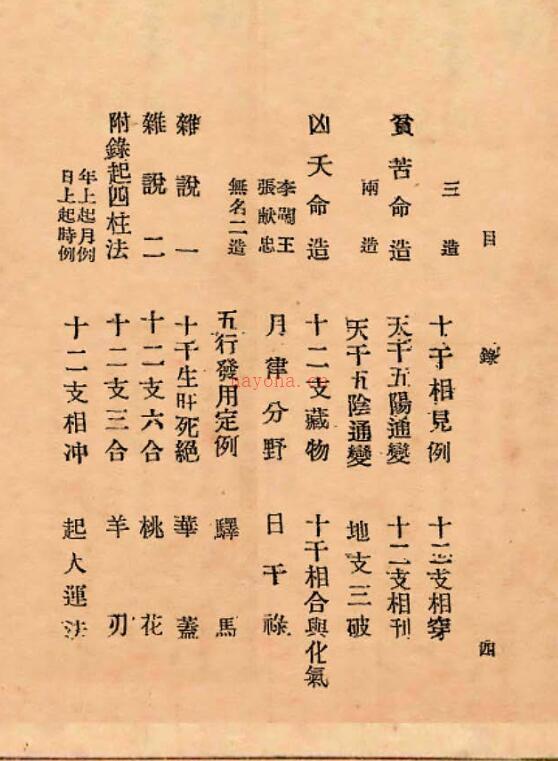 目錄 四
三造
貧苦命造
兩造
凶夭命造
李闖王
張献忠
無名二造
雜說一
雜說二
附錄起四柱法
年上起月例
日上起時例
十干相見例
天干五陽通變
天干五陰通變
十二支藏物
月律分野
五行發用定例
十干生旺死絕
十二支六合
十二支三合
十二支相冲
十二支相穿
十二支相刊
地支三破
十干相合與化氣
日干祿
驛馬
華蓋
桃花
羊刃
起大運法
nayona.cn